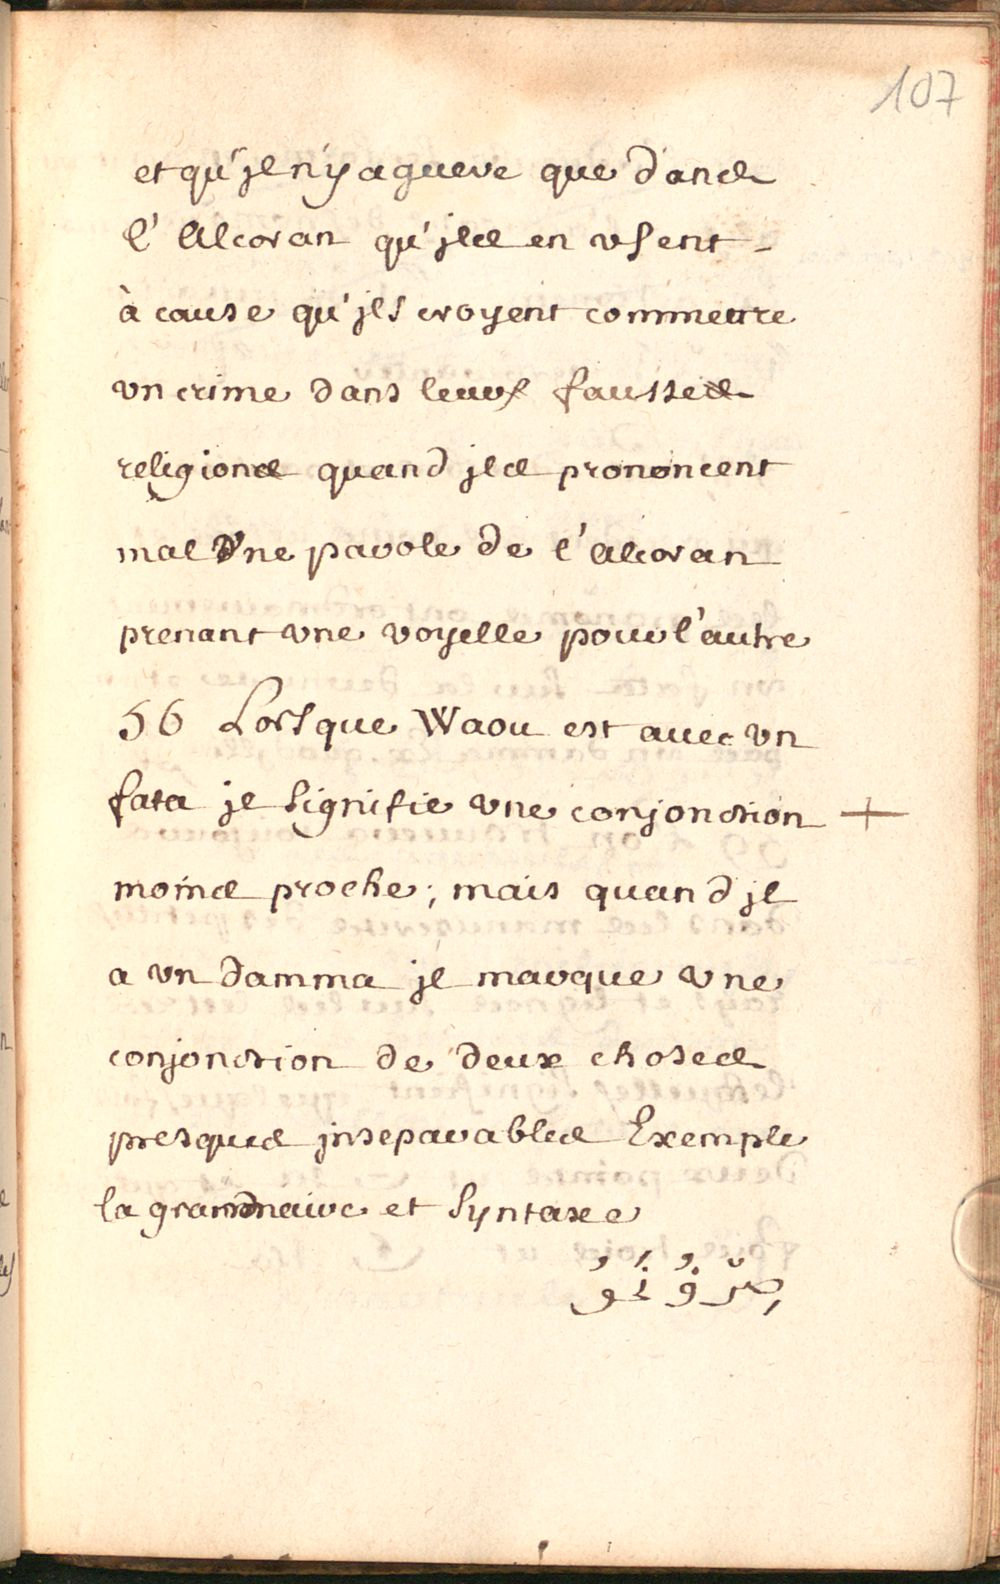 107
et qu'jl n'y a guere que dans
l'Alcoran qu'jls en vsent
à cause qu'jls croyent commettre
vn crime dans leurs fausses
religions quand jls prononcent
mal vne parole de l'Alcoran
prenant vne voyelle pour l'autre
56 Lorsque Waou est auec vn
fata jl signifie vne conjonction +
moins proche; mais quand jl
a vn damma jl marque vne
conjonction de deux choses
presques jnseparables Exemple
la grammaire et syntaxe